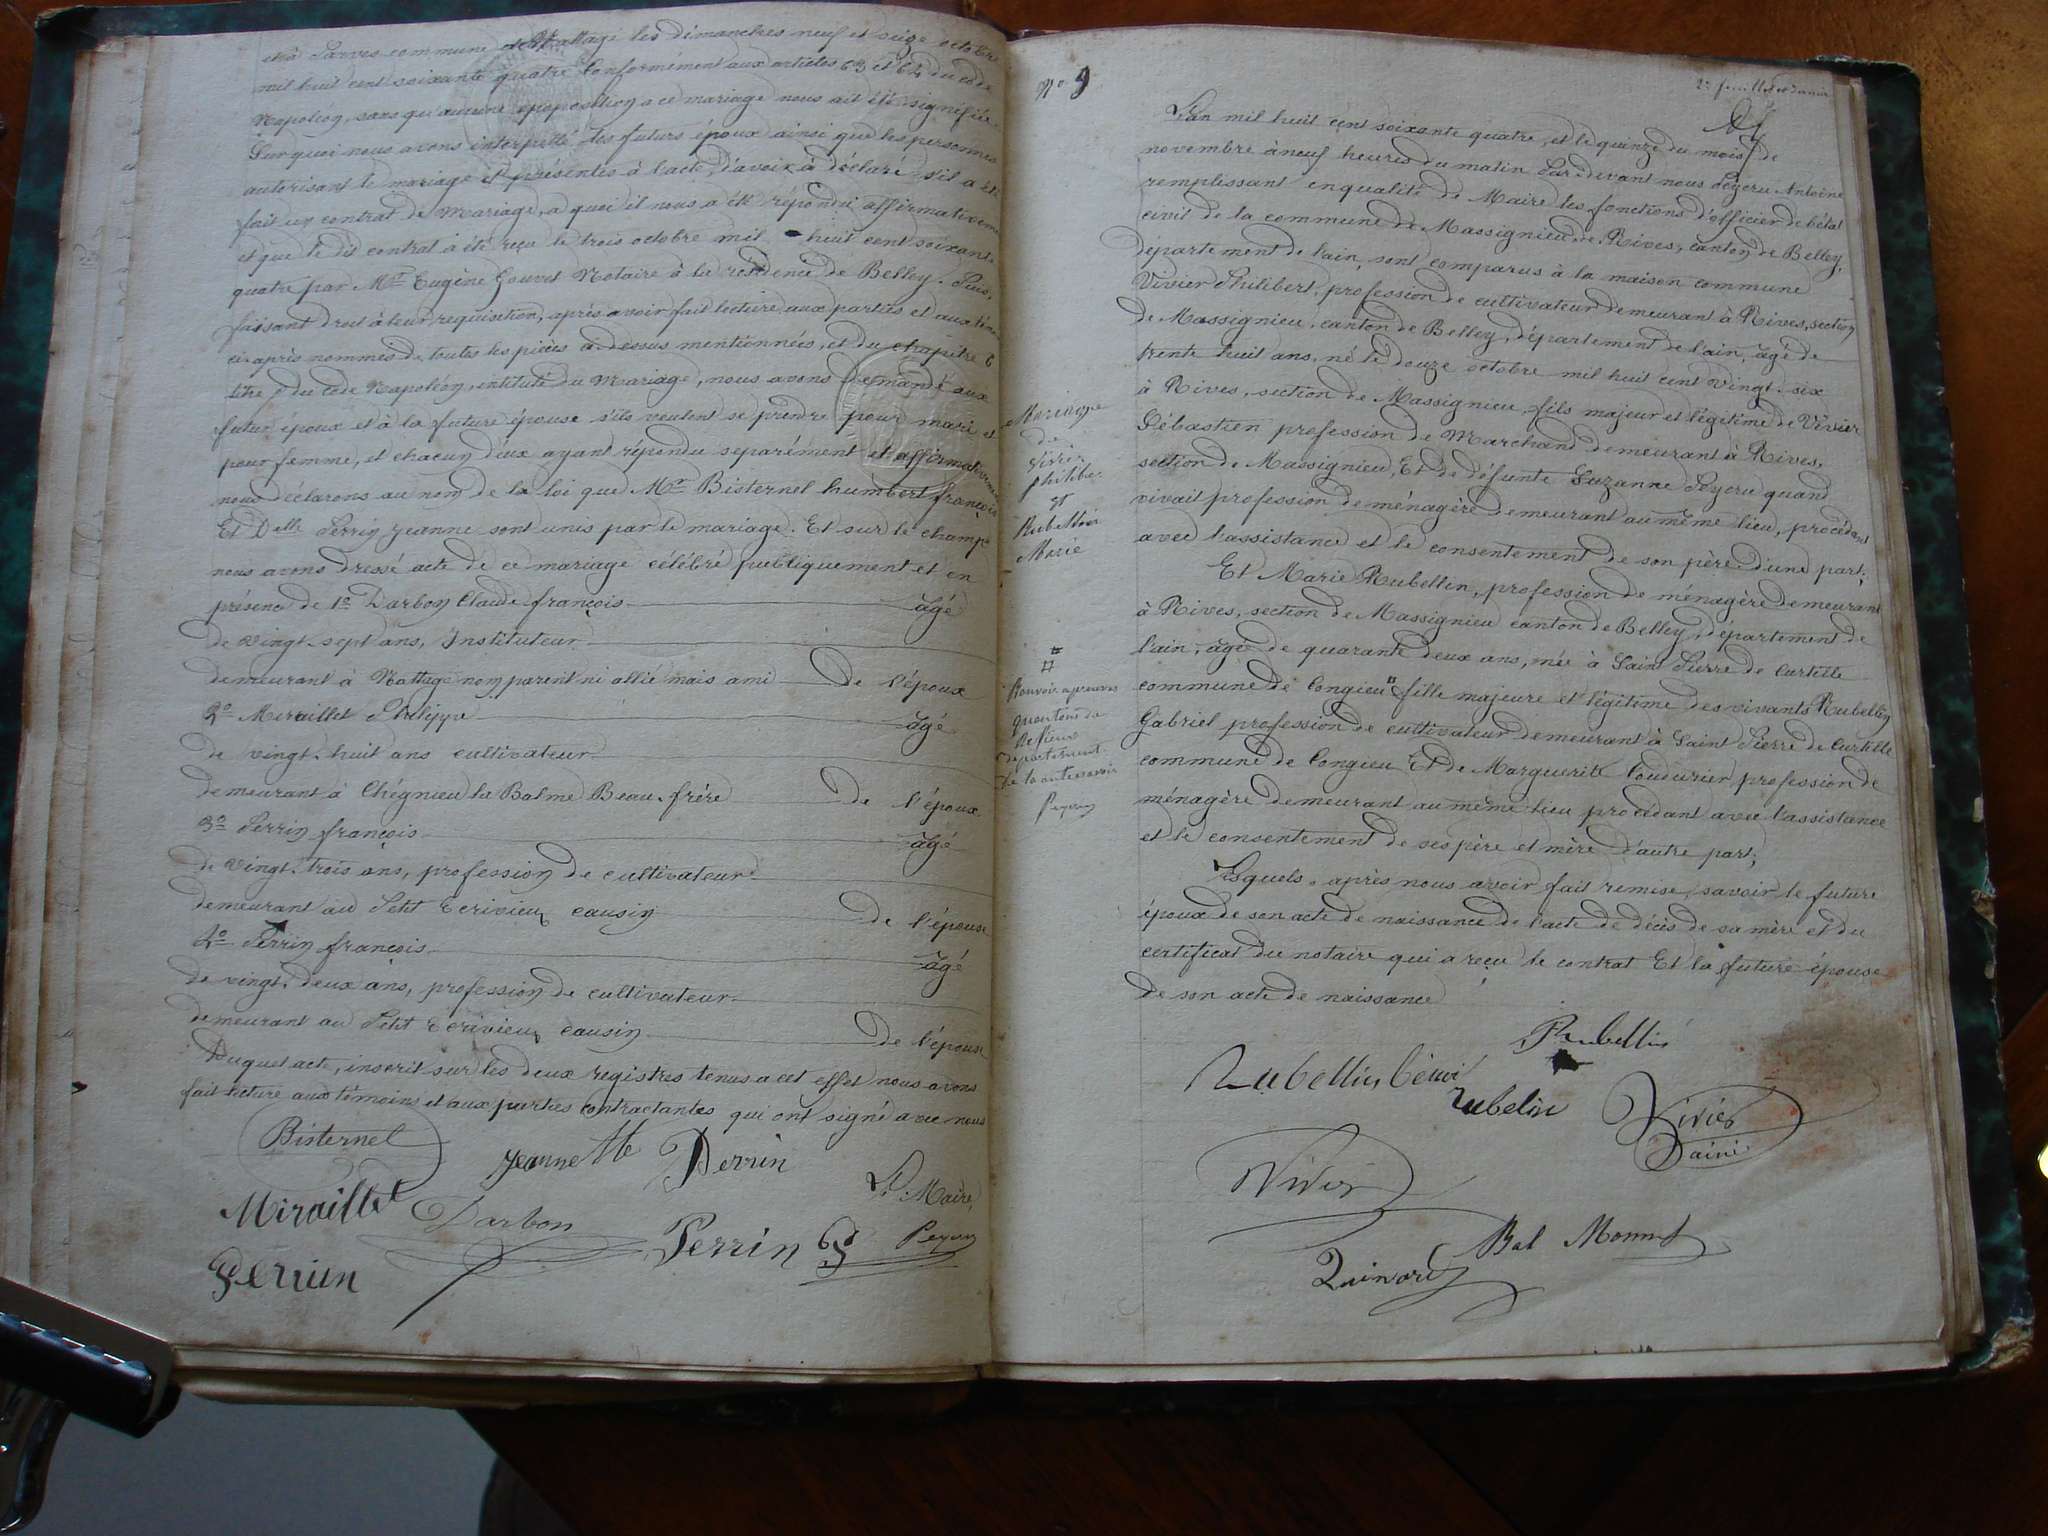 et à Parves commune de Nattage les dimanches neuf et seize octobre
mil huit cent soixante quatre conformement aux articles 63 et 64 du code
Napoléon, sans qu'aucune opposition a ce mariage nous ait été signifiée.
Sur quoi nous avons interpellé les futurs époux ainsi que les personnes
autorisant le mariage et présentes à l'acte, d'avoir à déclaré s'il a été
fait un contrat de Mariage, a quoi il nous a été répondu affirmativement
et que le dit contrat à été reçu le trois octobre mil huit cent soixante
quatre par Mr Eugène Gouvet Notaire à la résidence de Belley. Puis,
faisant droit à leur requisition, après avoir fait lecture aux parties et aux témoins
ci-après nommés de toutes les pièces ci-dessus mentionnées, et du chapitre 6
titre 5 du Code Napoléon, intitulé du Mariage, nous avons demandé aux
futur époux et à la future épouse s'ils veulent se prendre pour mari et
pour femme, et chacun d'eux ayant répondu separément et affirmativement
nous déclarons au nom de la loi que Mr Bisternel humbert françois
Et Delle Perrin jeanne sont unis par le mariage. Et sur le champ
nous avons dressé acte de ce mariage célébré publiquement et en
présence de 1o Darbon Claude françois âgé
de vingt-sept ans, Instituteur
demeurant à Nattage non parent ni allié mais ami De l'époux
2o Miraillet Philippe âgé
de vingt-huit ans cultivateur
demeurant à Chégnieu la Balme Beau-frère De l'époux
3o Perrin françois âgé
de vingt-trois ans, profession de cultivateur
demeurant au Petit Ecrivieux causin De l'épouse
4o Perrin françois âgé
de vingt-deux ans, profession de cultivateur
demeurant au Petit Ecrivieux causin De l'épouse
Duquel acte, inscrit sur les deux registres tenus a cet effet nous avons
fait lecture aux témoins et aux parties contractantes qui ont signé avec nous
Bisternel
jeannette Perrin
Le Maire,
Miraillet
Darbon
Perrin
Peyou
Perrin
No 9
2e feuillet
L'an mil huit cent soixante quatre, et le quinze du mois de
novembre à neuf heures du matin Par-devant nous Peyeru Antoine
remplissant en qualité de Maire les fonctions d'officier de l'état
civil de la commune de Massignieu de Rives, canton de Belley,
département de l'ain, sont comparus à la maison commune
Vivier Philibert, profession de cultivateur demeurant à Rives, section
de Massignieu, canton de Belley, département de l'ain, âgé de
trente huit ans, né le douze octobre mil huit cent vingt-six
à Rives, section de Massignieu, fils majeur et légitime de Vivier
Sébastien profession de Marchand demeurant à Rives,
section de Massignieu, Et de défunte Suzanne Peyeru quand
vivait profession de ménagère demeurant au même lieu, procédant
avec l'assistance et le consentement de son père d'une part;
Et Marie Rubellin, profession de ménagère demeurant
à Rives, section de Massignieu canton de Belley, département de
l'ain, âgée de quarante deux ans, née à Saint Pierre de Curtille
commune de Congieu # fille majeure et légitime des vivants Rubellin
Gabriel profession de cultivateur demeurant à Saint Pierre de Curtille
commune de Congieu Et de Marguerite Coudurier profession de
ménagère demeurant au même lieu procédant avec l'assistance
et le consentement de ses père et mère d'autre part;
Lesquels, après nous avoir fait remise, savoir le future
époux de son acte de naissance de l'acte de décès de sa mère et du
certificat du notaire qui a reçu le contrat Et la future épouse
de son acte de naissance
Mariage
de
Vivier
philiber
et
Rubellin
Marie
département
de la
Rubellin
Rubellin
rubelin
Vivier
Vivier
Bal Monnet